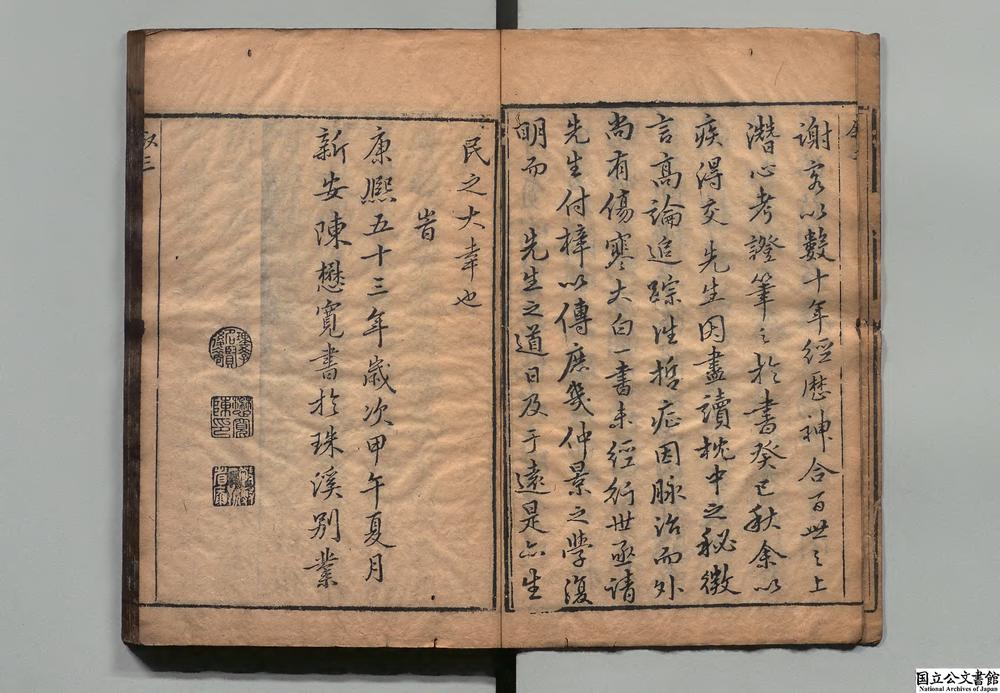 謝客以數十年經歷神合百世之上
潛心考證筆之於書癸巳秋余以
疾得交 先生因盡讀枕中之秘徵
言高論追踪往哲症因脉治而外
尚有傷寒大白一書未經行世亟請
先生付梓以傳庶幾仲景之學復
明而 先生之道日及于遠是亦生
民之大幸也
旹
康熙五十三年歲次甲午夏月
新安陳懋寬書於珠溪別業
叙三
陳印
懋寬
国立公文書館
National Archives of Japan